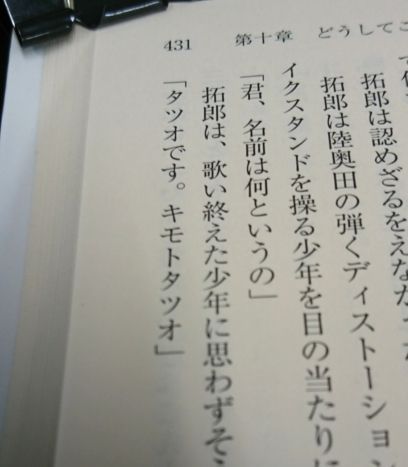 431 第十章 どうしてこ
拓郎は認めざるをえなかった
拓郎は陸奥田の弾くディストーション
イクスタンドを操る少年を目の当たりに
「君、名前は何というの」
拓郎は、歌い終えた少年に思わずそ
「タツオです。キモトタツオ」